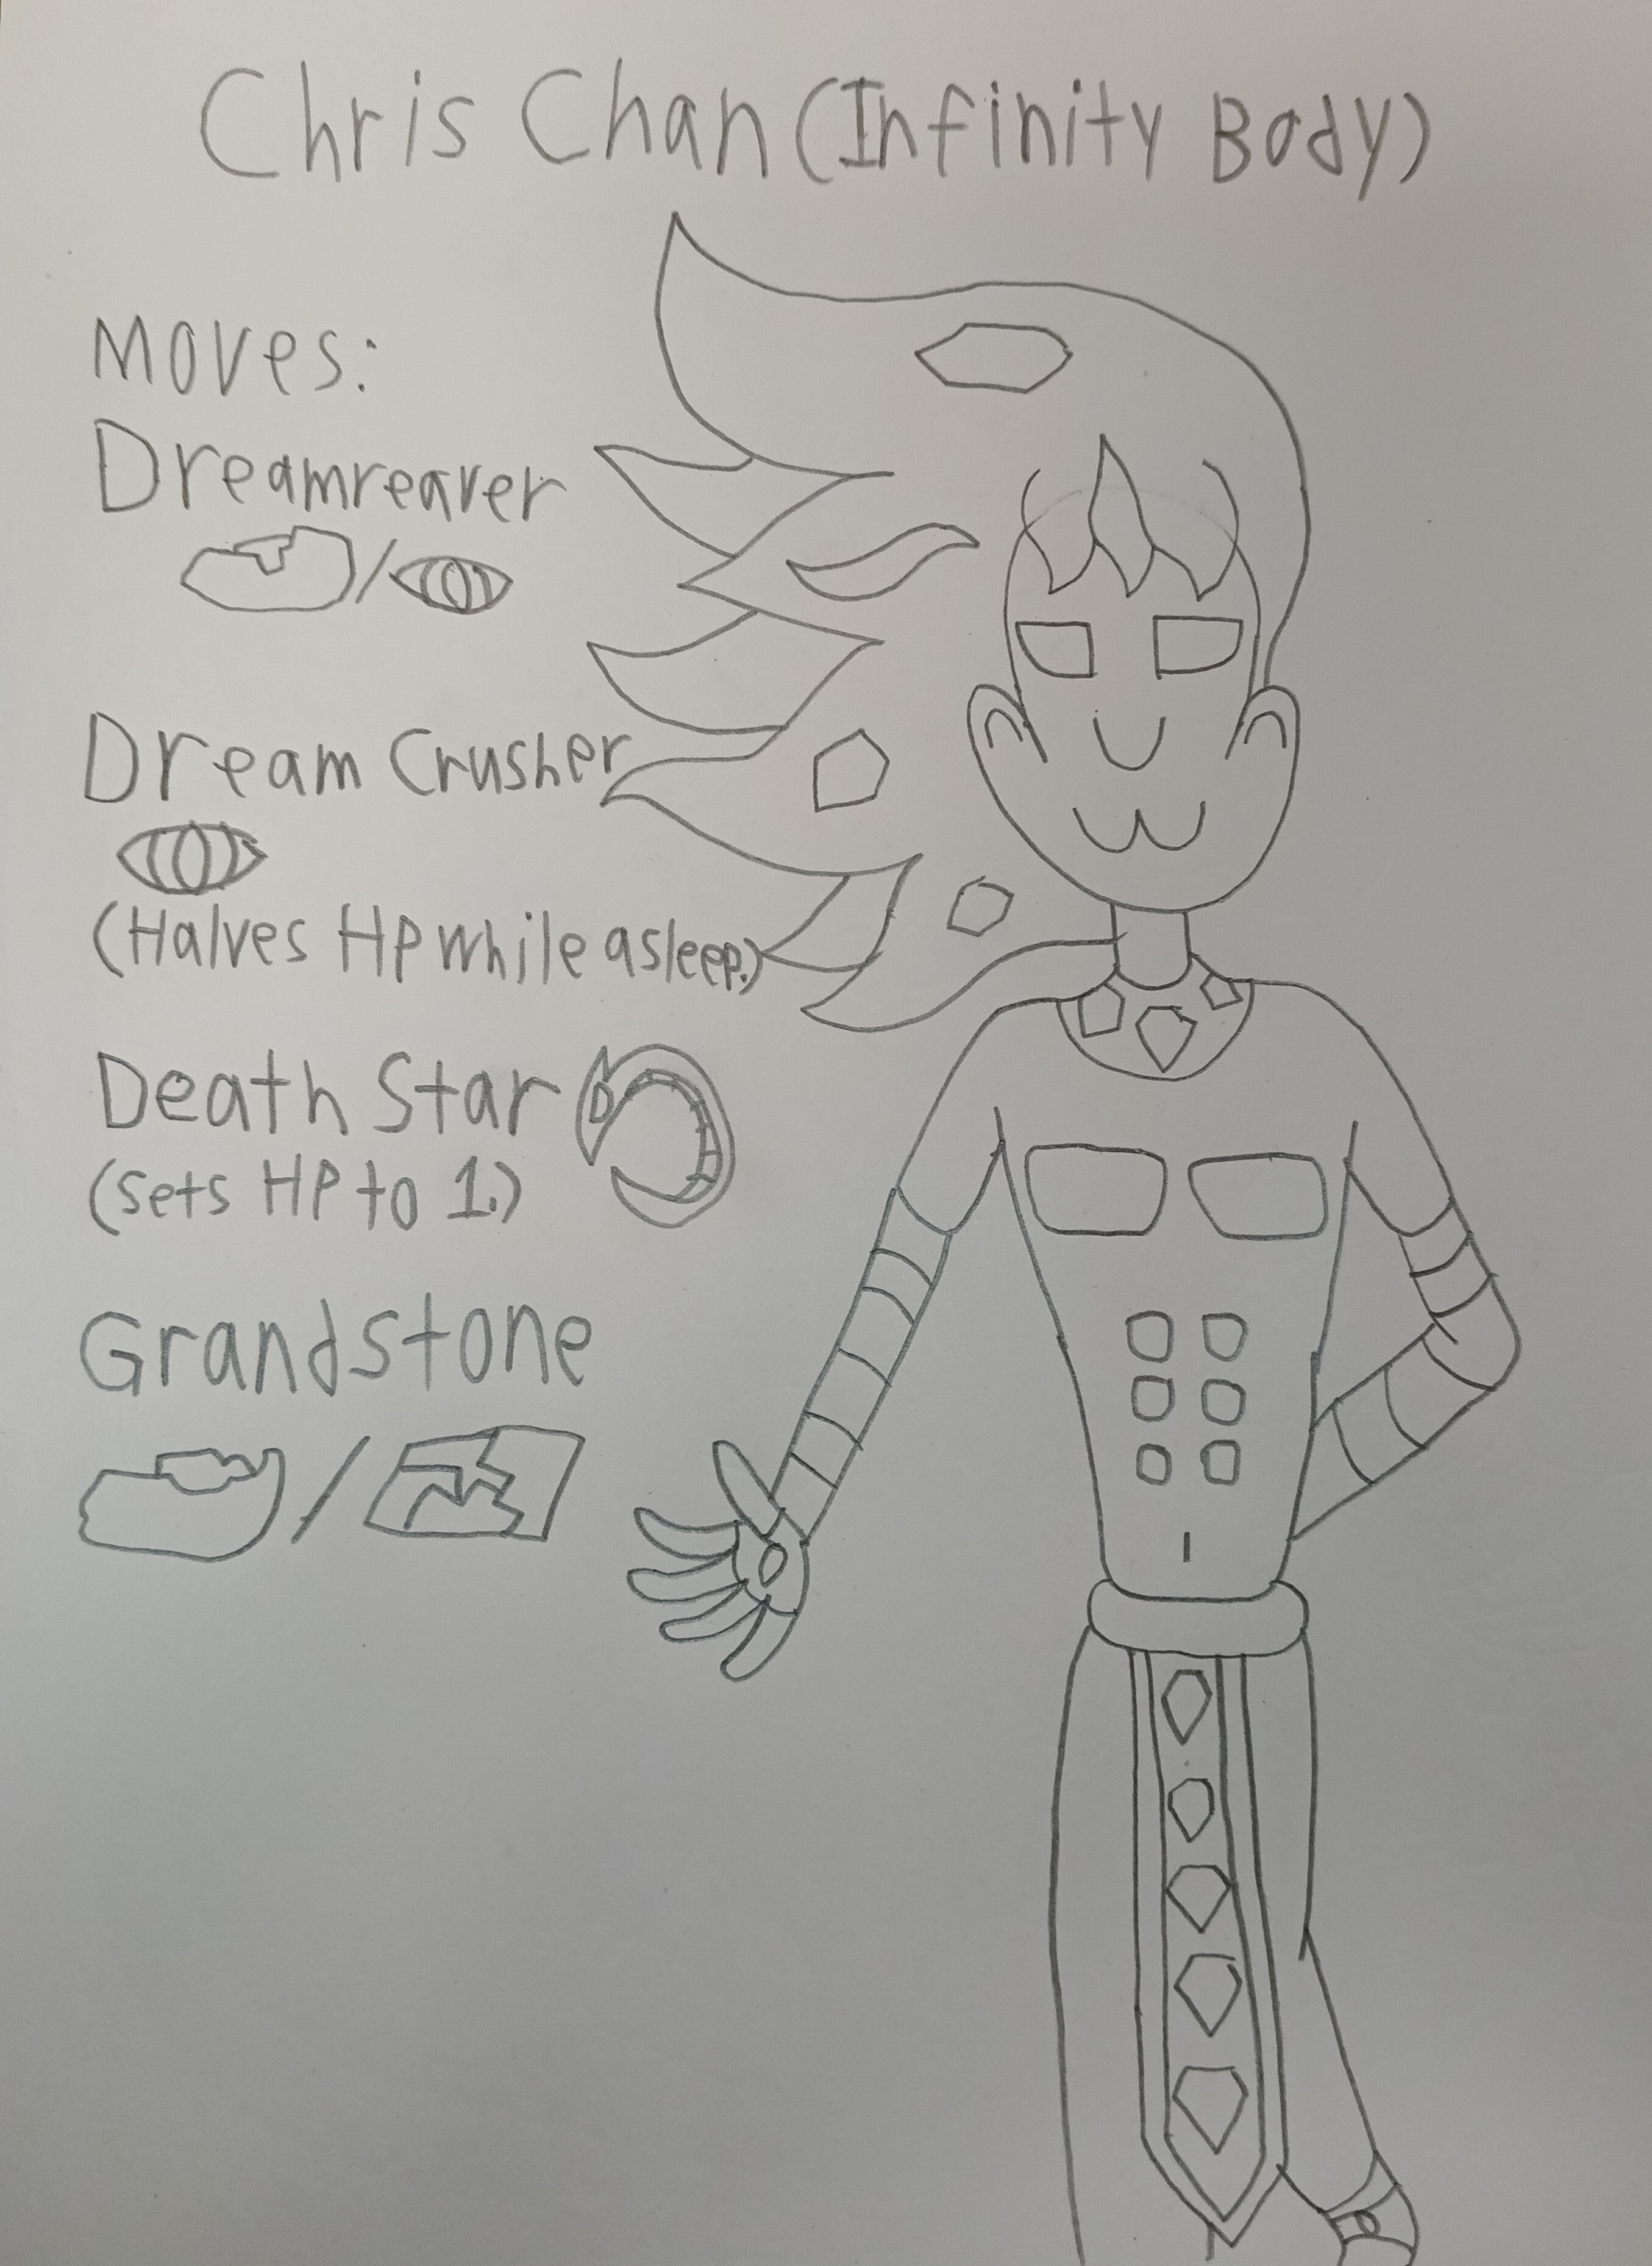 Chris Chan (Infinity Body)
Moves:
Dreamreaver
Dream Crusher
(Halves HP while asleep.)
Death Star
(Sets HP to 1.)
Grandstone